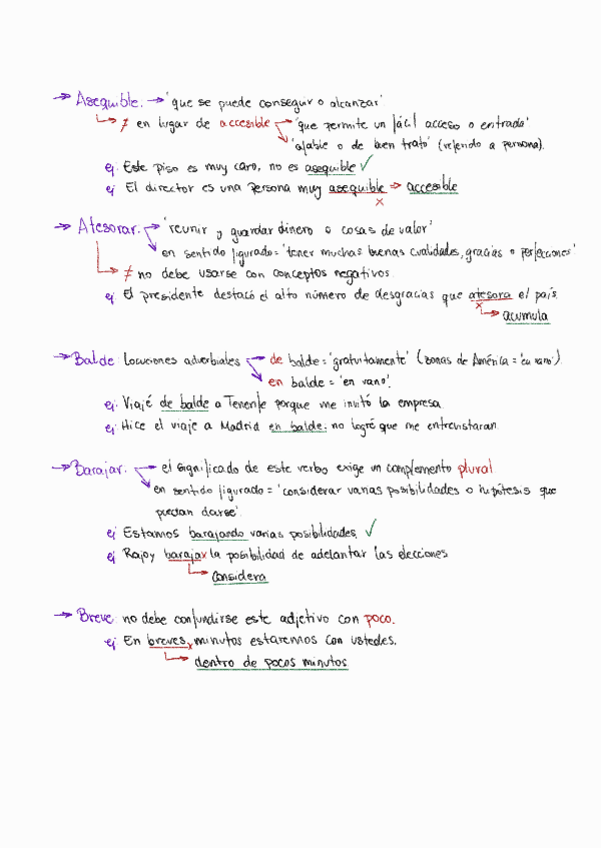 → Asequible. → 'que se puede conseguir o alcanzar'
↳ ≠ en lugar de accesible → 'que permite un fácil acceso o entrada'
↘ 'afable o de buen trato' (referido a persona).
ej: Este piso es muy caro, no es asequible ✓
ej: El director es una persona muy asequible → accesible
x
→ Atesorar. → 'reunir y guardar dinero o cosas de valor'
↘ en sentido figurado = 'tener muchas buenas cualidades, gracias o perfecciones'
↳ ≠ no debe usarse con conceptos negativos.
ej: El presidente destacó el alto número de desgracias que atesora el país.
x ↳ acumula
→ Balde: locuciones adverbiales → de balde = 'gratuitamente' (zonas de América = 'en vano').
↘ en balde = 'en vano'.
ej: Viajé de balde a Tenerife porque me invitó la empresa.
ej: Hice el viaje a Madrid en balde: no logré que me entrevistaran.
→ Barajar. → el significado de este verbo exige un complemento plural
↘ en sentido figurado = 'considerar varias posibilidades o hipótesis que
puedan darse'.
ej: Estamos barajando varias posibilidades. ✓
ej: Rajoy baraja x la posibilidad de adelantar las elecciones
↳ considera
→ Breve: no debe confundirse este adjetivo con poco.
ej: En breves x minutos estaremos con ustedes.
↳ dentro de pocos minutos